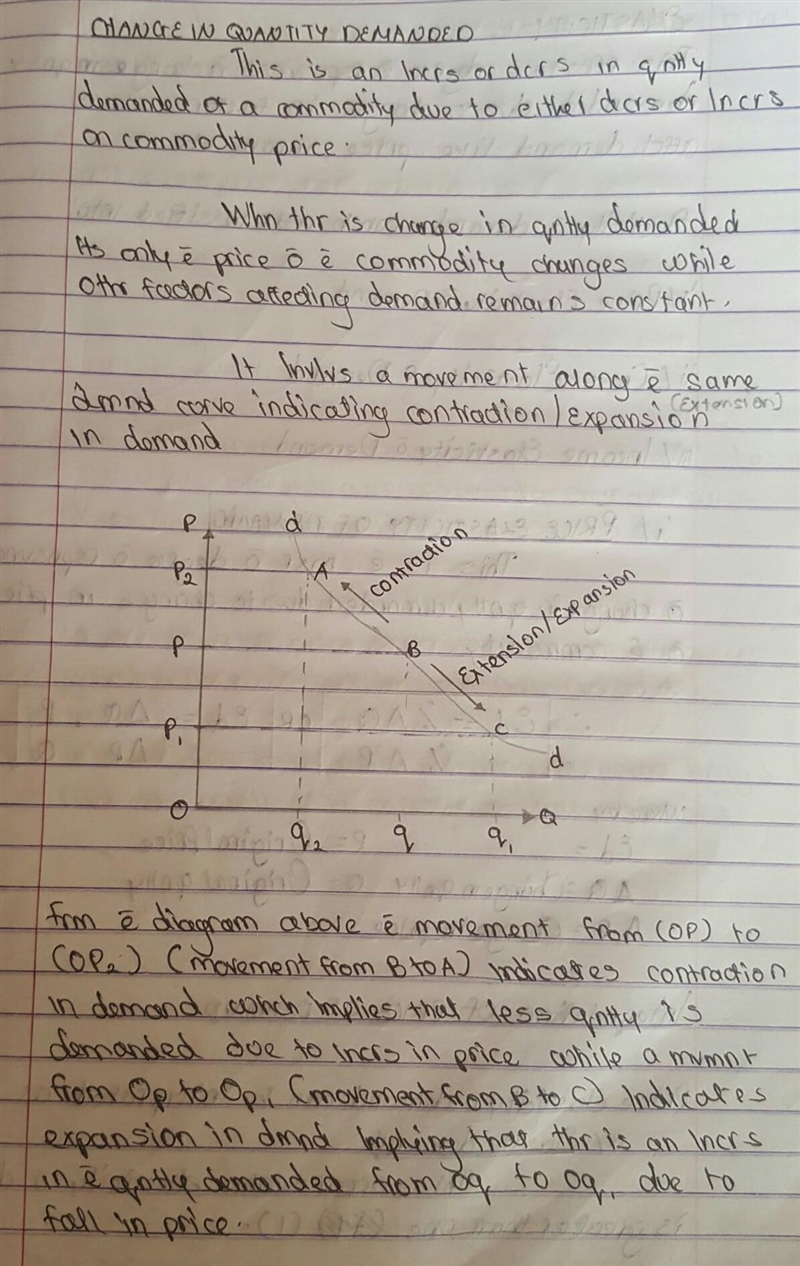 CHANGE IN QUANTITY DEMANDED
This is an Incrs or dcrs in qntty
demanded of a commodity due to either dcrs or Incrs
on commodity price.
Whn thr is change in qntty demanded
Its only ē price ō ē commodity changes while
Othr factors affecting demand remains constant.
It Invlvs a movement along ē same
dmnd corve indicating contraction/expansion
(Extension)
in demand
P d
P2 A contraction
P B Extension/Expansion
P1 C
d
O q2 q q1 Q
frm ē diagram above ē movement from (OP) to
(OP2) (movement from B to A) indicates contraction
in demand which implies that less qntty is
demanded due to Incrs in price while a mvmnt
from Op to Op1 (movement from B to C) Indicates
expansion in dmnd Implying that thr is an Incrs
in ē qntty demanded from oq to oq1 due to
fall in price.